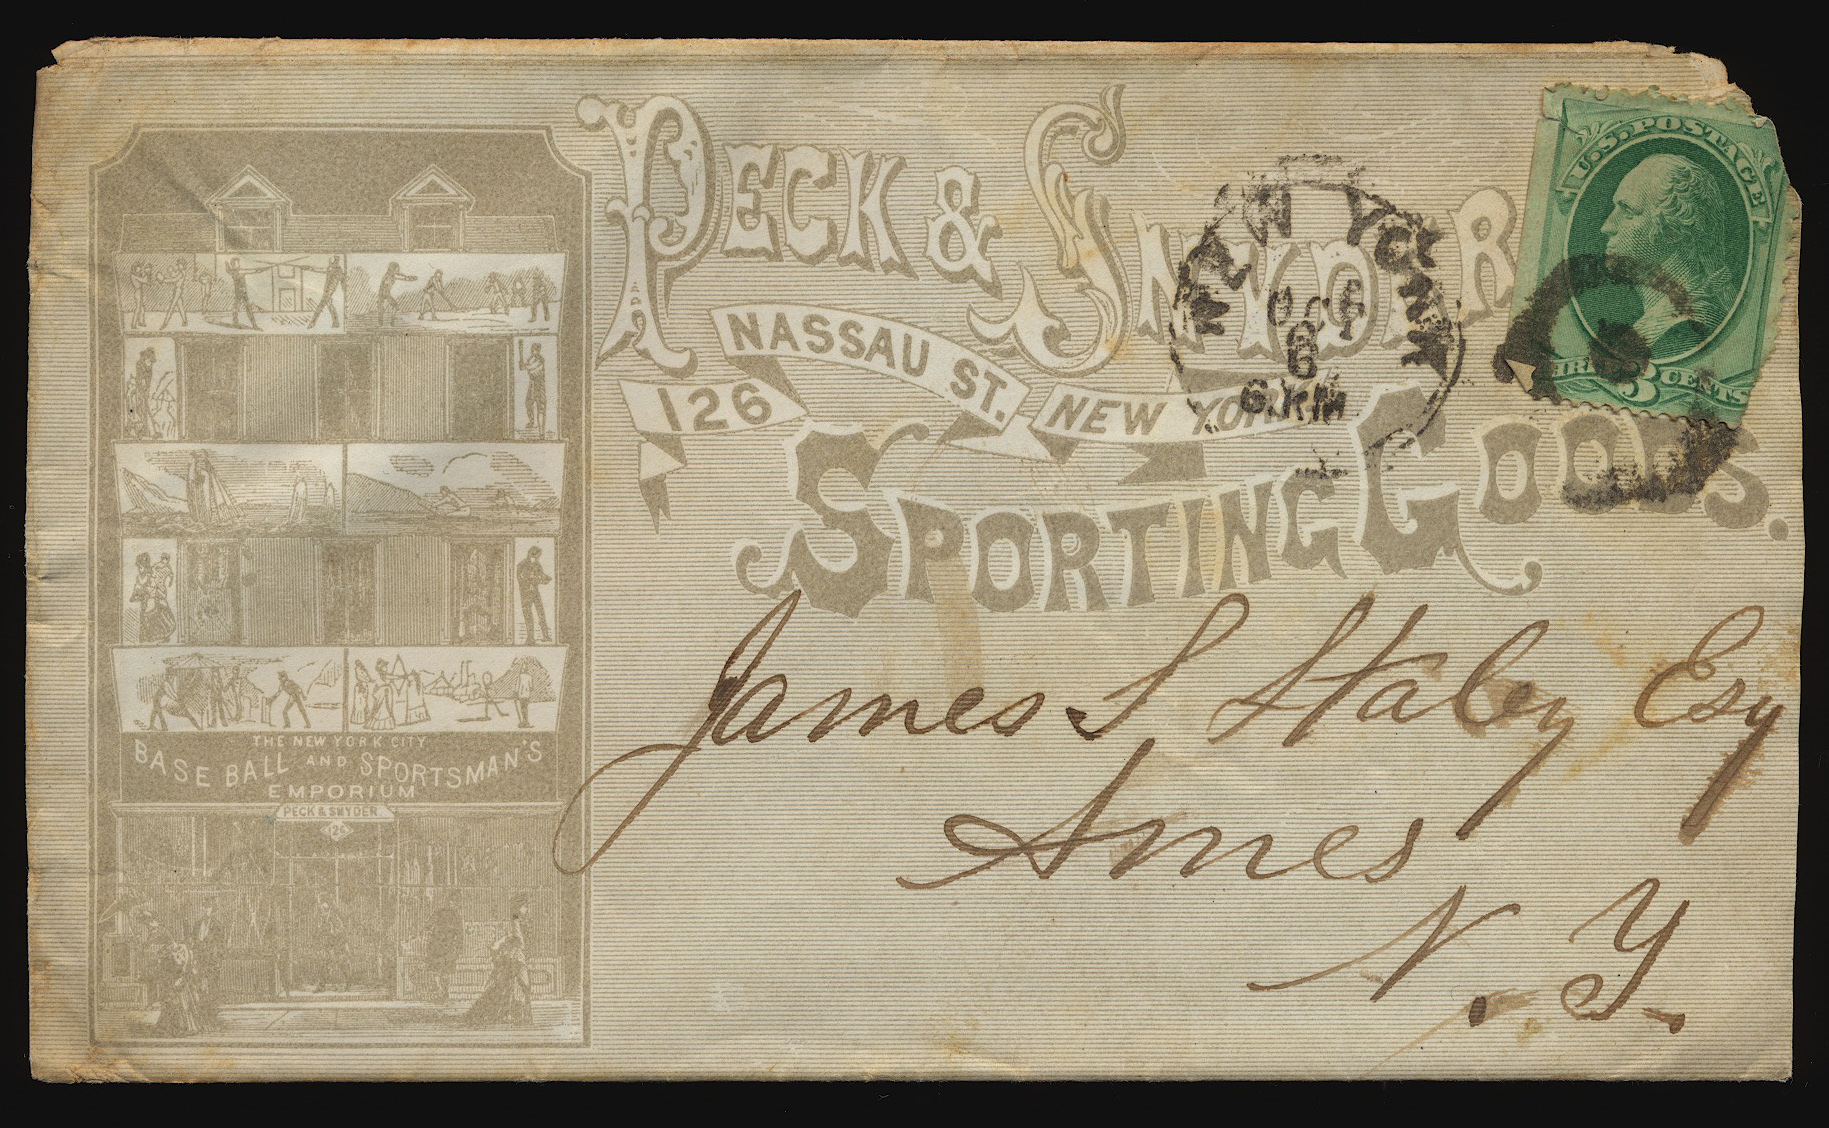 PECK & SNYDER
126 NASSAU ST. NEW YORK
SPORTING GOODS.
NEW YORK
OCT
6
U.S. POSTAGE
THREE 3 CENTS
James S Staley Esq
Ames
N.Y.
THE NEW YORK CITY
BASE BALL AND SPORTSMAN'S
EMPORIUM
PECK & SNYDER
126